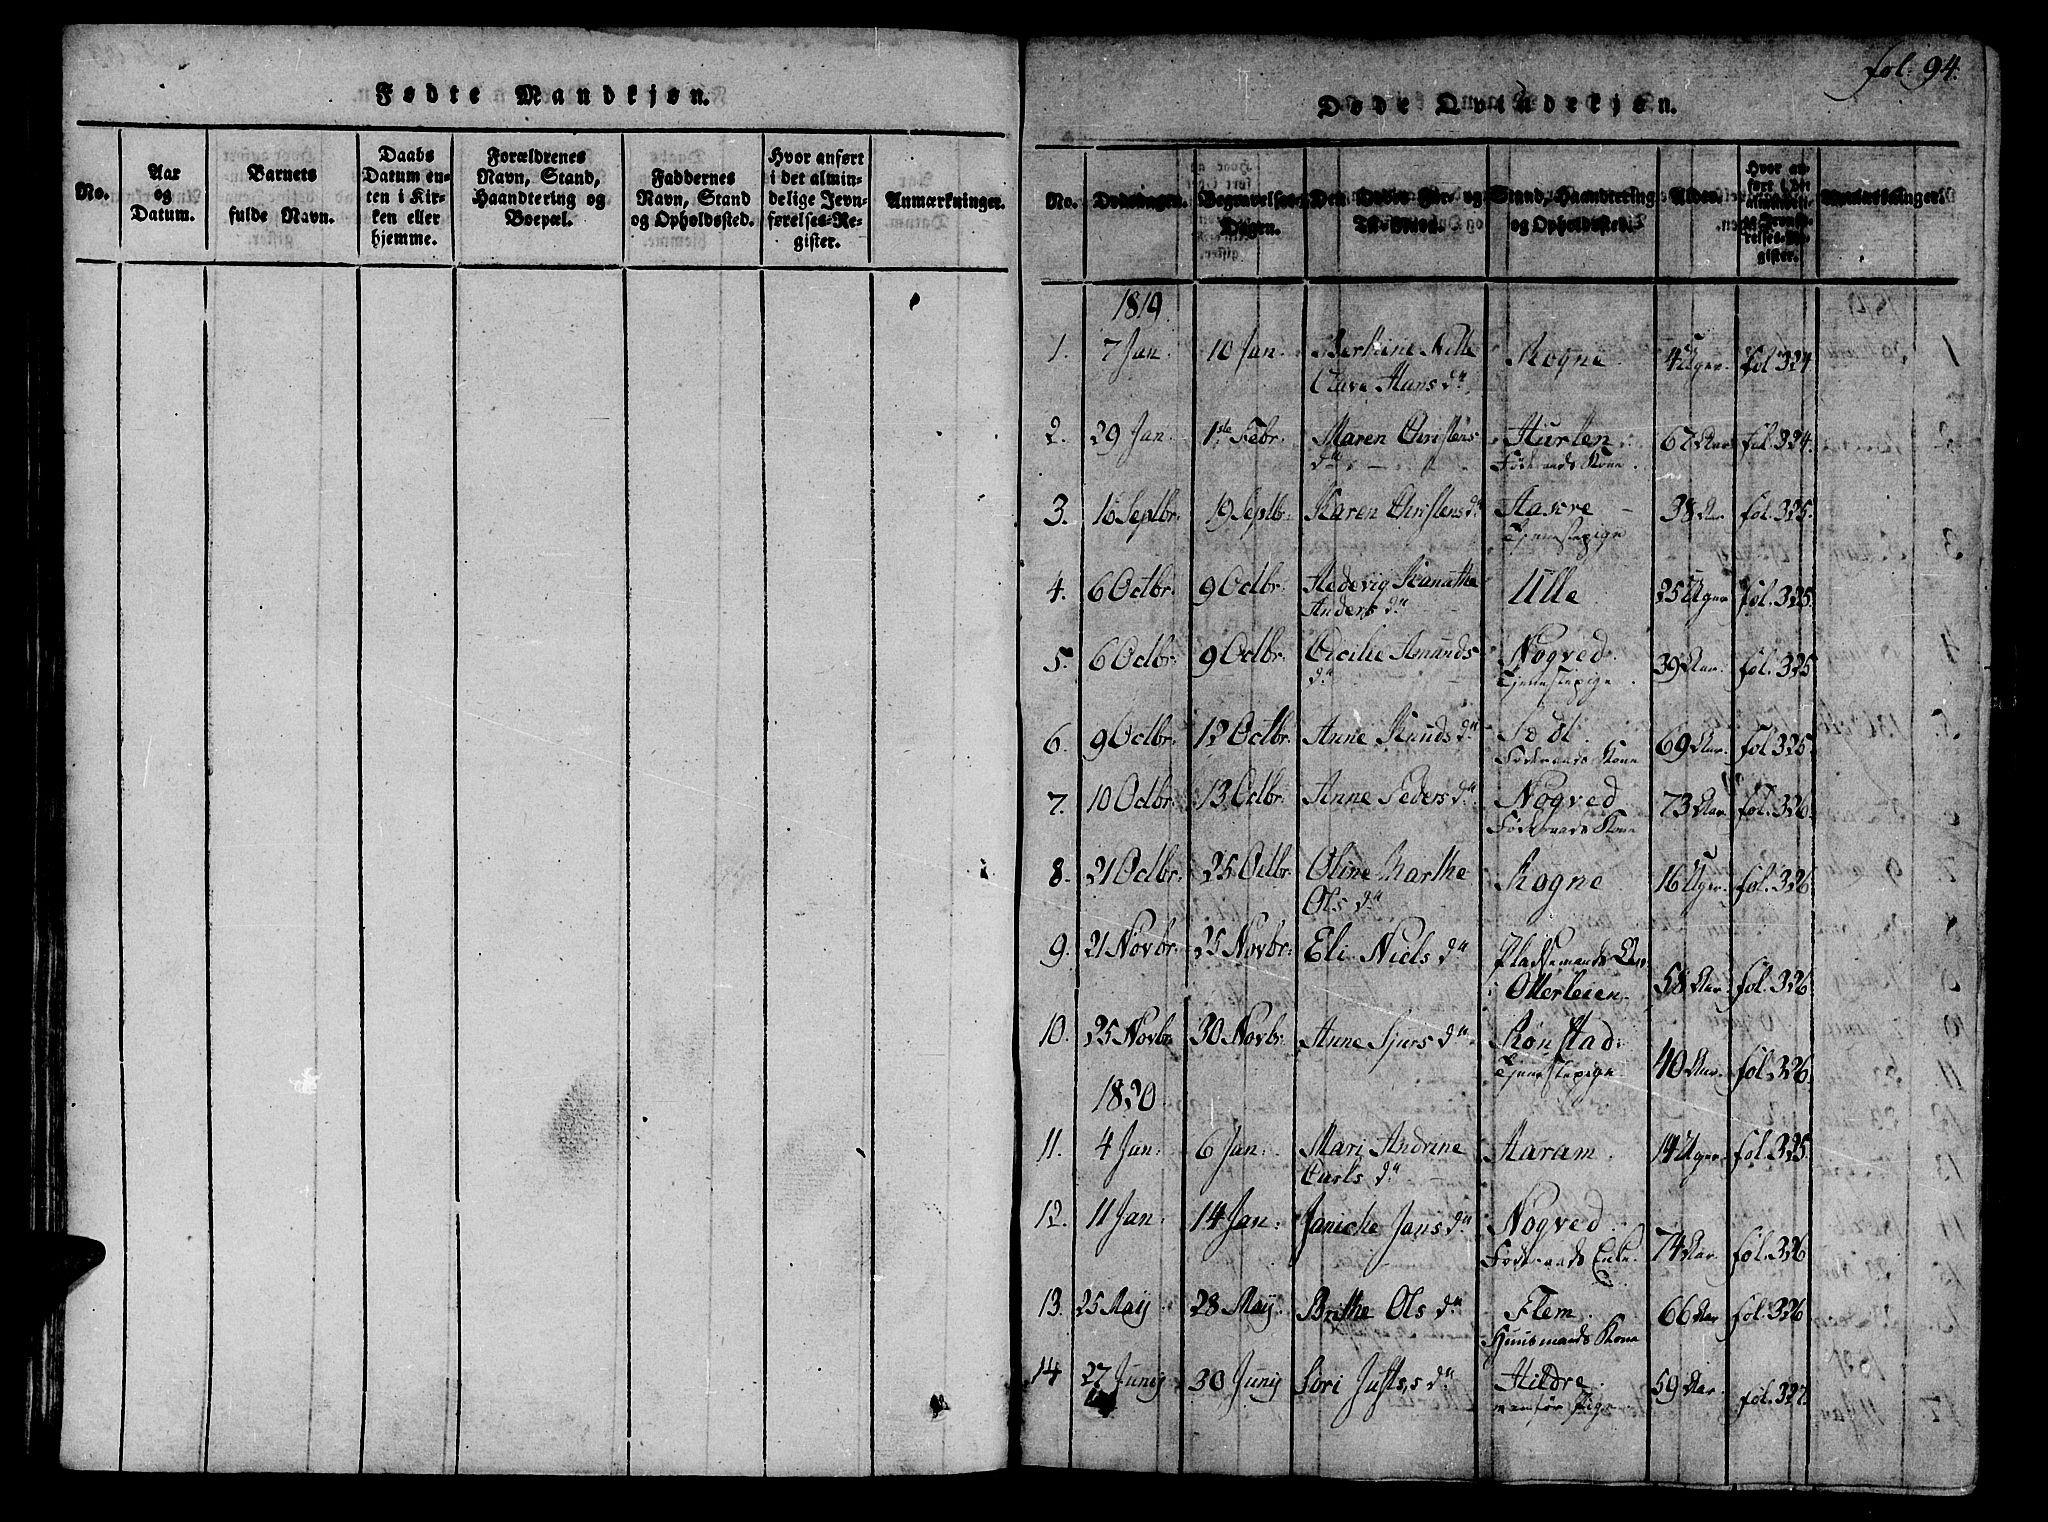 Fødte Mandkjøn.
No.
Aar og Datum.
Barnets fulde Navn.
Daabs Datum enten i Kirken eller hjemme.
Forældrenes Navn, Stand, Haandtering og Boepæl.
Faddernes Navn, Stand og Opholdssted.
Hvor anført i det almindelige Jevnførelses-Register.
Anmærkninger.
fol. 94.
Døde Qvindekjøn.
No.
Dødsdagen.
Begravelses Dagen.
Den Dødes For- og Til-Navn.
Stand, Haandtering og Opholdssted.
Alder.
Hvor anført i det almindelige Jevnførelses-Register.
Anmærkninger.
1819.
1. 7 Jan. 10 Jan. Berthine Nille Rogne 4 Uger. fol 324
Clave Hans d:
2. 29 Jan. 1ste Febr. Maren Christens Hurlen 67 Aar fol. 324.
d: Føderaads Kone.
3. 16 Septbr. 19 Septb: Karen Christens d: Aakre 38 Aar fol. 325.
Tjenestepige
4. 6 Octbr. 9 Octbr. Hedevig Ulle 25 Uger fol. 325.
Anders d:
5. 6 Octbr. 9 Octbr. Cicilie Amunds Nogved. 39 Aar. fol. 325
d: Tjenestepige.
6. 9 Octbr. 12 Octbr. Anne Knuds d: 69 Aar. fol. 325.
Føderaads Kone
7. 10 Octbr. 13 Octbr. Anne Peders d: Nogved 73 Aar fol. 326.
Føderaads Kone
8. 21 Octbr. 25 Octbr. Oline Marthe Rogne 16 Uger. fol. 326
Ols d:
9. 21 Novbr. 25 Novbr: Eli Niels d: Pladsemands
i Otterleien. 58 Aar. fol. 326
10. 25 Novbr. 30 Novbr. Anne Sjurs d: Rønstad.
Tjenestepige 40 Aar. fol. 326.
1820.
11. 4 Jan. 6 Jan. Mari Andrine Aaram. 14 Uger fol. 325
Carls d:
12. 11 Jan. 14 Jan. Janiche Jans d: Nogved.
Føderaads Enke. 74 Aar. fol. 326
13. 25 Maij 28 Maij. Brithe Ols d: Flem. 66 Aar fol. 326
Huusmands Kone
14 27 Junij 30 Junij Lori Justs,s d: Hildre. 59 Aar. fol. 327.
vanfør Pige